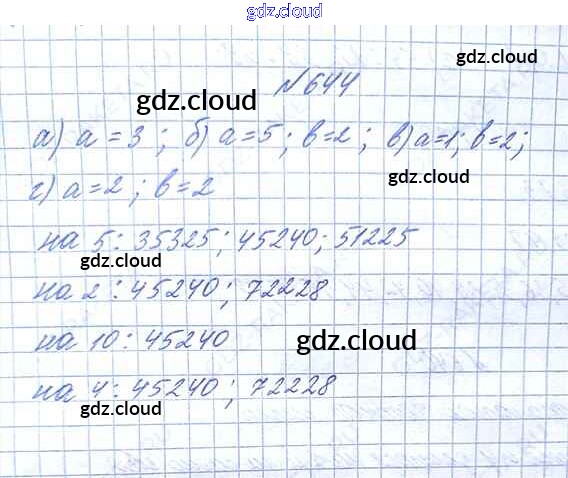 gdz.cloud
gdz.cloud
№644
gdz.cloud
а) a=3; б) a=5; b=2; в) a=1; b=2;
gdz.cloud
г) a=2; b=2
на 5: 35325; 45240; 51225
gdz.cloud gdz.cloud
на 2: 45240; 72228
на 10: 45240
gdz.cloud
на 4: 45240; 72228
gdz.cloud